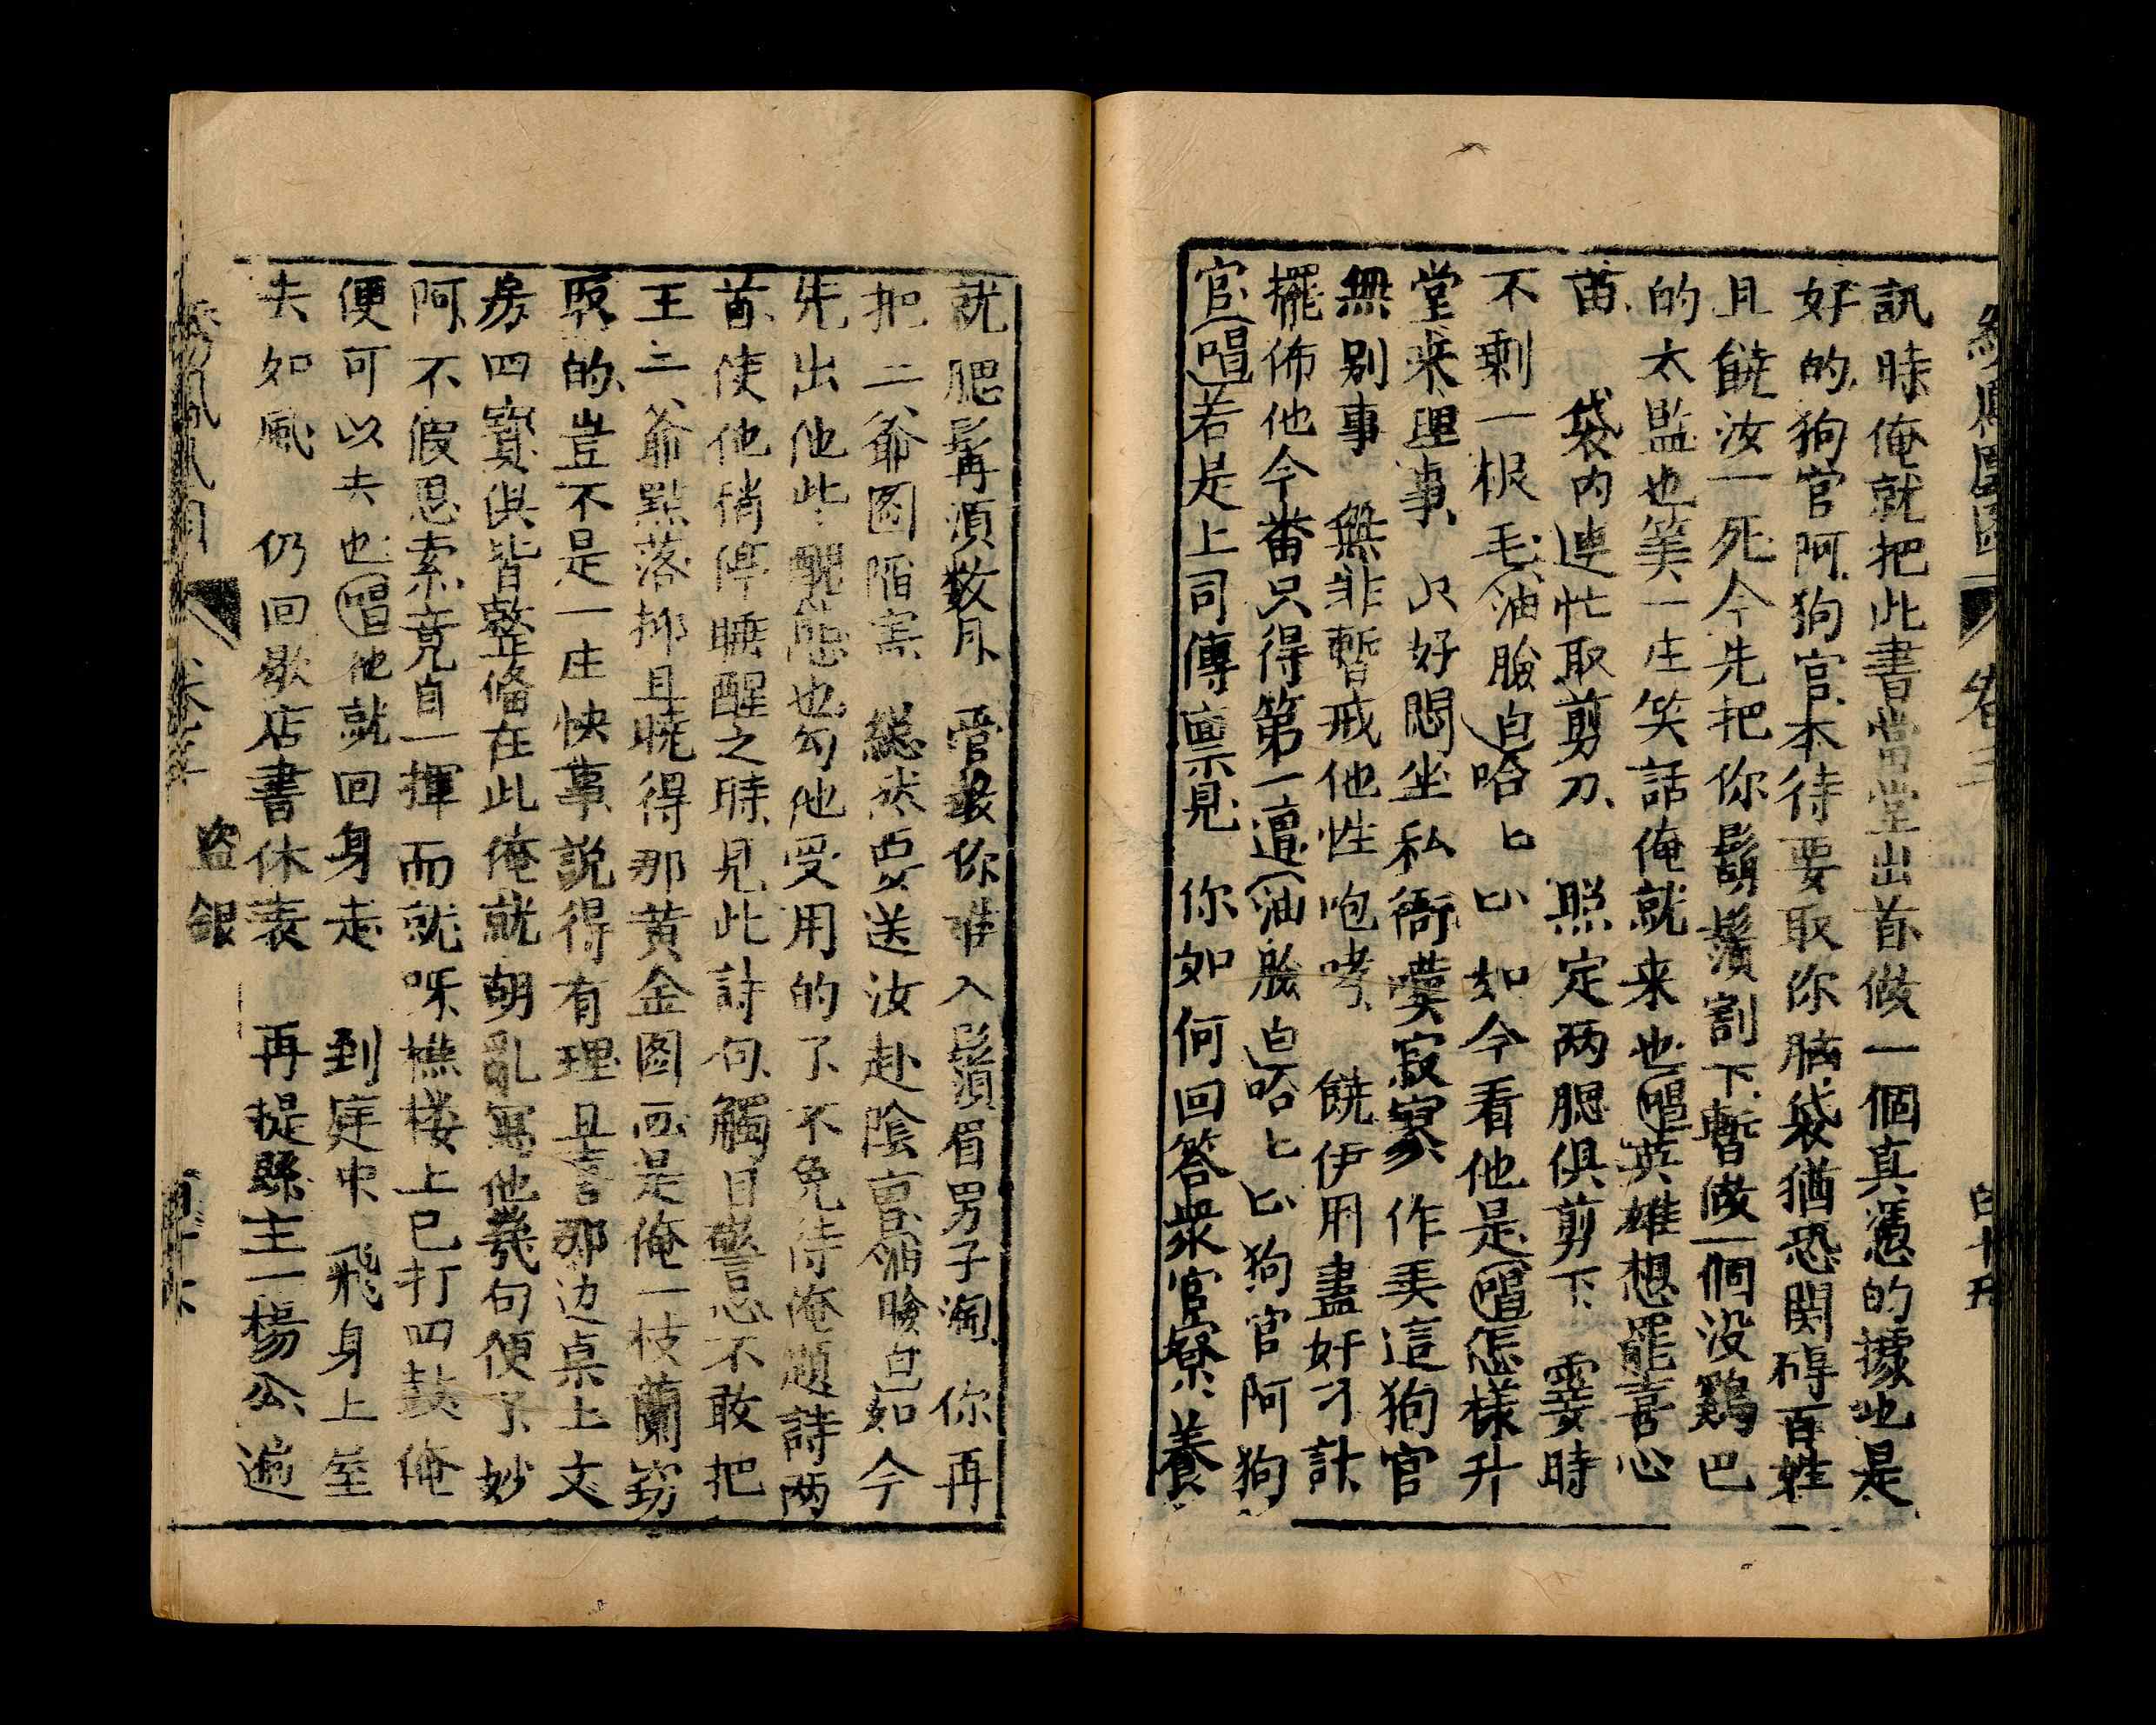 繡鳳凰圖 卷三 百十五
訊時俺就把此書當堂出首做一個真憑的據也是
好的狗官阿狗官本待要取你腦袋猶恐関碍百姓
且饒汝一死今先把你鬍鬚割下暫做一個没鷄巴
的太監也筭一庄笑話俺就来也唱英雄想罷喜心
苗 袋内連忙取剪刀 照定两腮俱剪下 霎時
不剩一根毛油臉白哈匕匕如今看他是唱怎樣升
堂来理事 只好悶坐私衙嘆寂寥 作羙這狗官
無别事 無非暫戒他性咆哮 饒伊用盡奸刁計
擺佈他今番只得第一遭油臉白哈匕匕狗官阿狗
官唱若是上司傳禀見 你如何回答衆官寮 養
就腮髯須数月 管教你难入鬚眉男子淘 你再
把二爺圖陷害 縂然要送汝赴隂曹油臉白如今
先出他此醜態也勾他受用的了不免待俺題詩两
首使他稍停睡醒之時見此詩句觸目驚心不敢把
王二爺點落抑且曉得那黄金图画是俺一枝蘭窃
取的豈不是一庄快事説得有理且喜那边桌上文
房四寶俱皆整俻在此俺就胡亂寫他幾句便了妙
阿不假思索竟自一揮而就呀樵楼上已打四鼓俺
便可以去也唱他就回身走 到庭中 飛身上屋
去如風 仍回歇店書休表 再提縣主一楊公 
盗銀